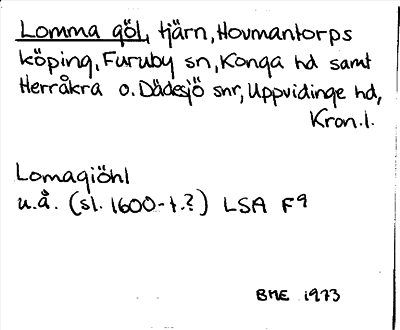 Lomma göl, tjärn, Hovmantorps
köping, Furuby sn, Konga hd samt
Herråkra o. Dädesjö snr, Uppvidinge hd,
Kron.l.
Lomagiöhl
u.å. (sl. 1600-t.?) LSA F9
BME 1973